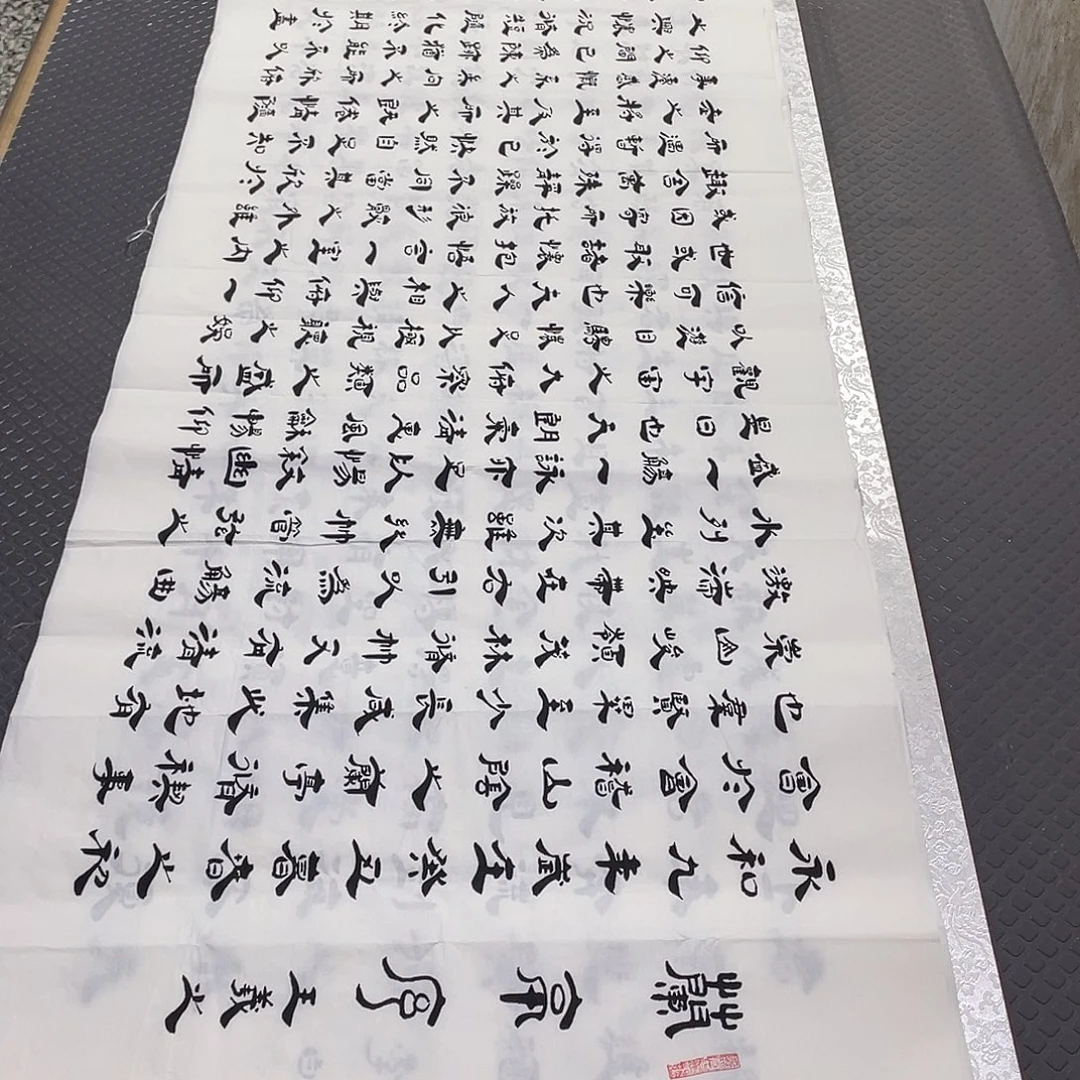 蘭亭序 王羲之
永和九年歲在癸丑暮春之初
會於會稽山陰之蘭亭脩禊事
也群賢畢至少長咸集此地有
崇山峻領茂林脩竹又有清流
激湍映帶左右引以為流觴曲
水列坐其次雖無絲竹管弦之
盛一觴一詠亦足以暢敘幽情
是日也天朗氣清惠風和暢仰
觀宇宙之大俯察品類之盛所
以遊目騁懷足以極視聽之娛
信可樂也夫人之相與俯仰一
世或取諸懷抱悟言一室之內
或因寄所託放浪形骸之外雖
趣舍萬殊靜躁不同當其欣於
所遇暫得於己快然自足不知
老之將至及其所之既倦情隨
事遷感慨係之矣向之所欣俛
仰之間以為陳迹猶不能不以
之興懷況脩短隨化終期於盡